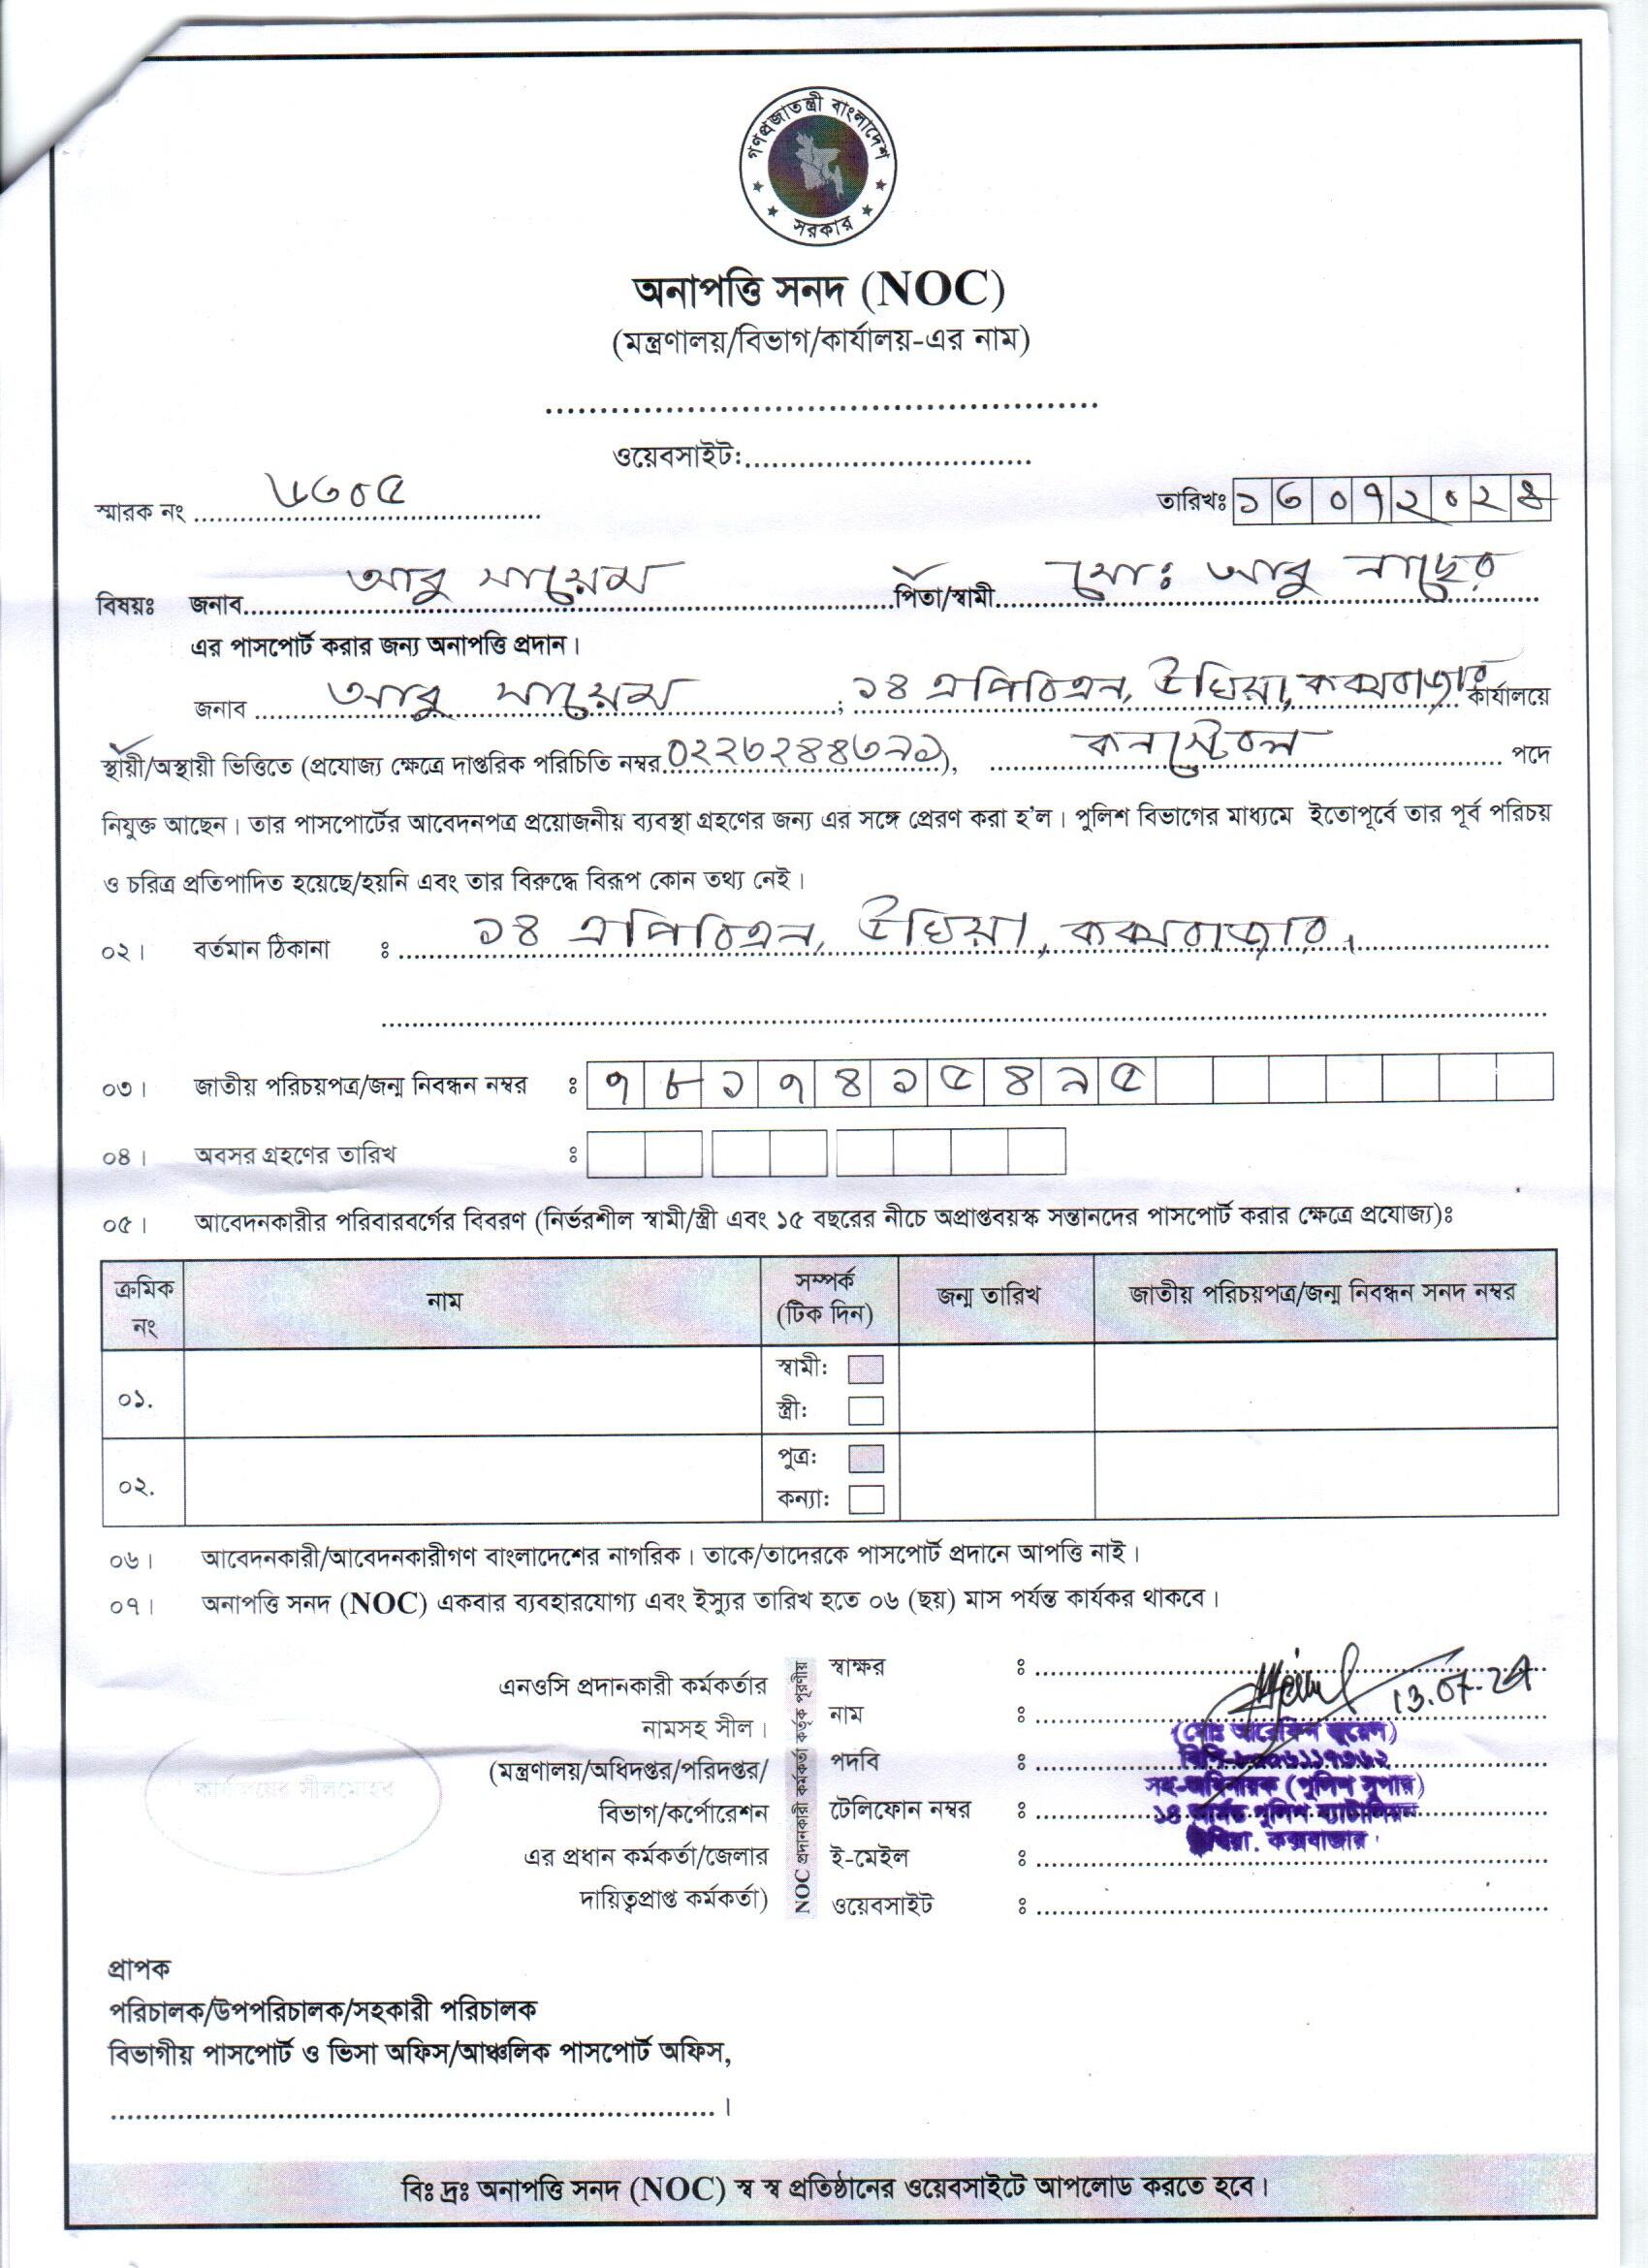 গণপ্রজাতন্ত্রী বাংলাদেশ
সরকার
অনাপত্তি সনদ (NOC)
(মন্ত্রণালয়/বিভাগ/কার্যালয়-এর নাম)
ওয়েবসাইট:
স্মারক নং ৬৩০৫
তারিখঃ ১৩০৭২০২৪
বিষয়ঃ জনাব আবু সায়েম পিতা/স্বামী মোঃ আবু নাছের
এর পাসপোর্ট করার জন্য অনাপত্তি প্রদান।
জনাব আবু সায়েম ; ১৪ এপিবিএন, উখিয়া, কক্সবাজার কার্যালয়ে
স্থায়ী/অস্থায়ী ভিত্তিতে (প্রযোজ্য ক্ষেত্রে দাপ্তরিক পরিচিতি নম্বর ), কনস্টেবল পদে
নিযুক্ত আছেন। তার পাসপোর্টের আবেদনপত্র প্রয়োজনীয় ব্যবস্থা গ্রহণের জন্য এর সঙ্গে প্রেরণ করা হ'ল। পুলিশ বিভাগের মাধ্যমে ইতোপূর্বে তার পূর্ব পরিচয়
ও চরিত্র প্রতিপাদিত হয়েছে/হয়নি এবং তার বিরুদ্ধে বিরূপ কোন তথ্য নেই।
০২। বর্তমান ঠিকানা ঃ ১৪ এপিবিএন, উখিয়া, কক্সবাজার।
০৩। জাতীয় পরিচয়পত্র/জন্ম নিবন্ধন নম্বর ঃ ৭৮১৭৪১৫৪৯৫
০৪। অবসর গ্রহণের তারিখ ঃ
০৫। আবেদনকারীর পরিবারবর্গের বিবরণ (নির্ভরশীল স্বামী/স্ত্রী এবং ১৫ বছরের নীচে অপ্রাপ্তবয়স্ক সন্তানদের পাসপোর্ট করার ক্ষেত্রে প্রযোজ্য)ঃ
ক্রমিক নং নাম সম্পর্ক (টিক দিন) জন্ম তারিখ জাতীয় পরিচয়পত্র/জন্ম নিবন্ধন সনদ নম্বর
০১. স্বামী:
স্ত্রী:
০২. পুত্র:
কন্যা:
০৬। আবেদনকারী/আবেদনকারীগণ বাংলাদেশের নাগরিক। তাকে/তাদেরকে পাসপোর্ট প্রদানে আপত্তি নাই।
০৭। অনাপত্তি সনদ (NOC) একবার ব্যবহারযোগ্য এবং ইস্যুর তারিখ হতে ০৬ (ছয়) মাস পর্যন্ত কার্যকর থাকবে।
এনওসি প্রদানকারী কর্মকর্তার
নামসহ সীল।
(মন্ত্রণালয়/অধিদপ্তর/পরিদপ্তর/
বিভাগ/কর্পোরেশন
এর প্রধান কর্মকর্তা/জেলার
দায়িত্বপ্রাপ্ত কর্মকর্তা)
কার্যালয়ের সীলমোহর
NOC প্রদানকারী কর্মকর্তা কর্তৃক পূরণীয়
স্বাক্ষর ঃ 13.07.24
নাম ঃ (মোঃ আরেফিন জুয়েল)
পদবি ঃ
সহ-অধিনায়ক (পুলিশ সুপার)
টেলিফোন নম্বর ঃ ১৪ আর্মড পুলিশ ব্যাটালিয়ন
উখিয়া, কক্সবাজার।
ই-মেইল ঃ
ওয়েবসাইট ঃ
প্রাপক
পরিচালক/উপপরিচালক/সহকারী পরিচালক
বিভাগীয় পাসপোর্ট ও ভিসা অফিস/আঞ্চলিক পাসপোর্ট অফিস,
বিঃ দ্রঃ অনাপত্তি সনদ (NOC) স্ব স্ব প্রতিষ্ঠানের ওয়েবসাইটে আপলোড করতে হবে।